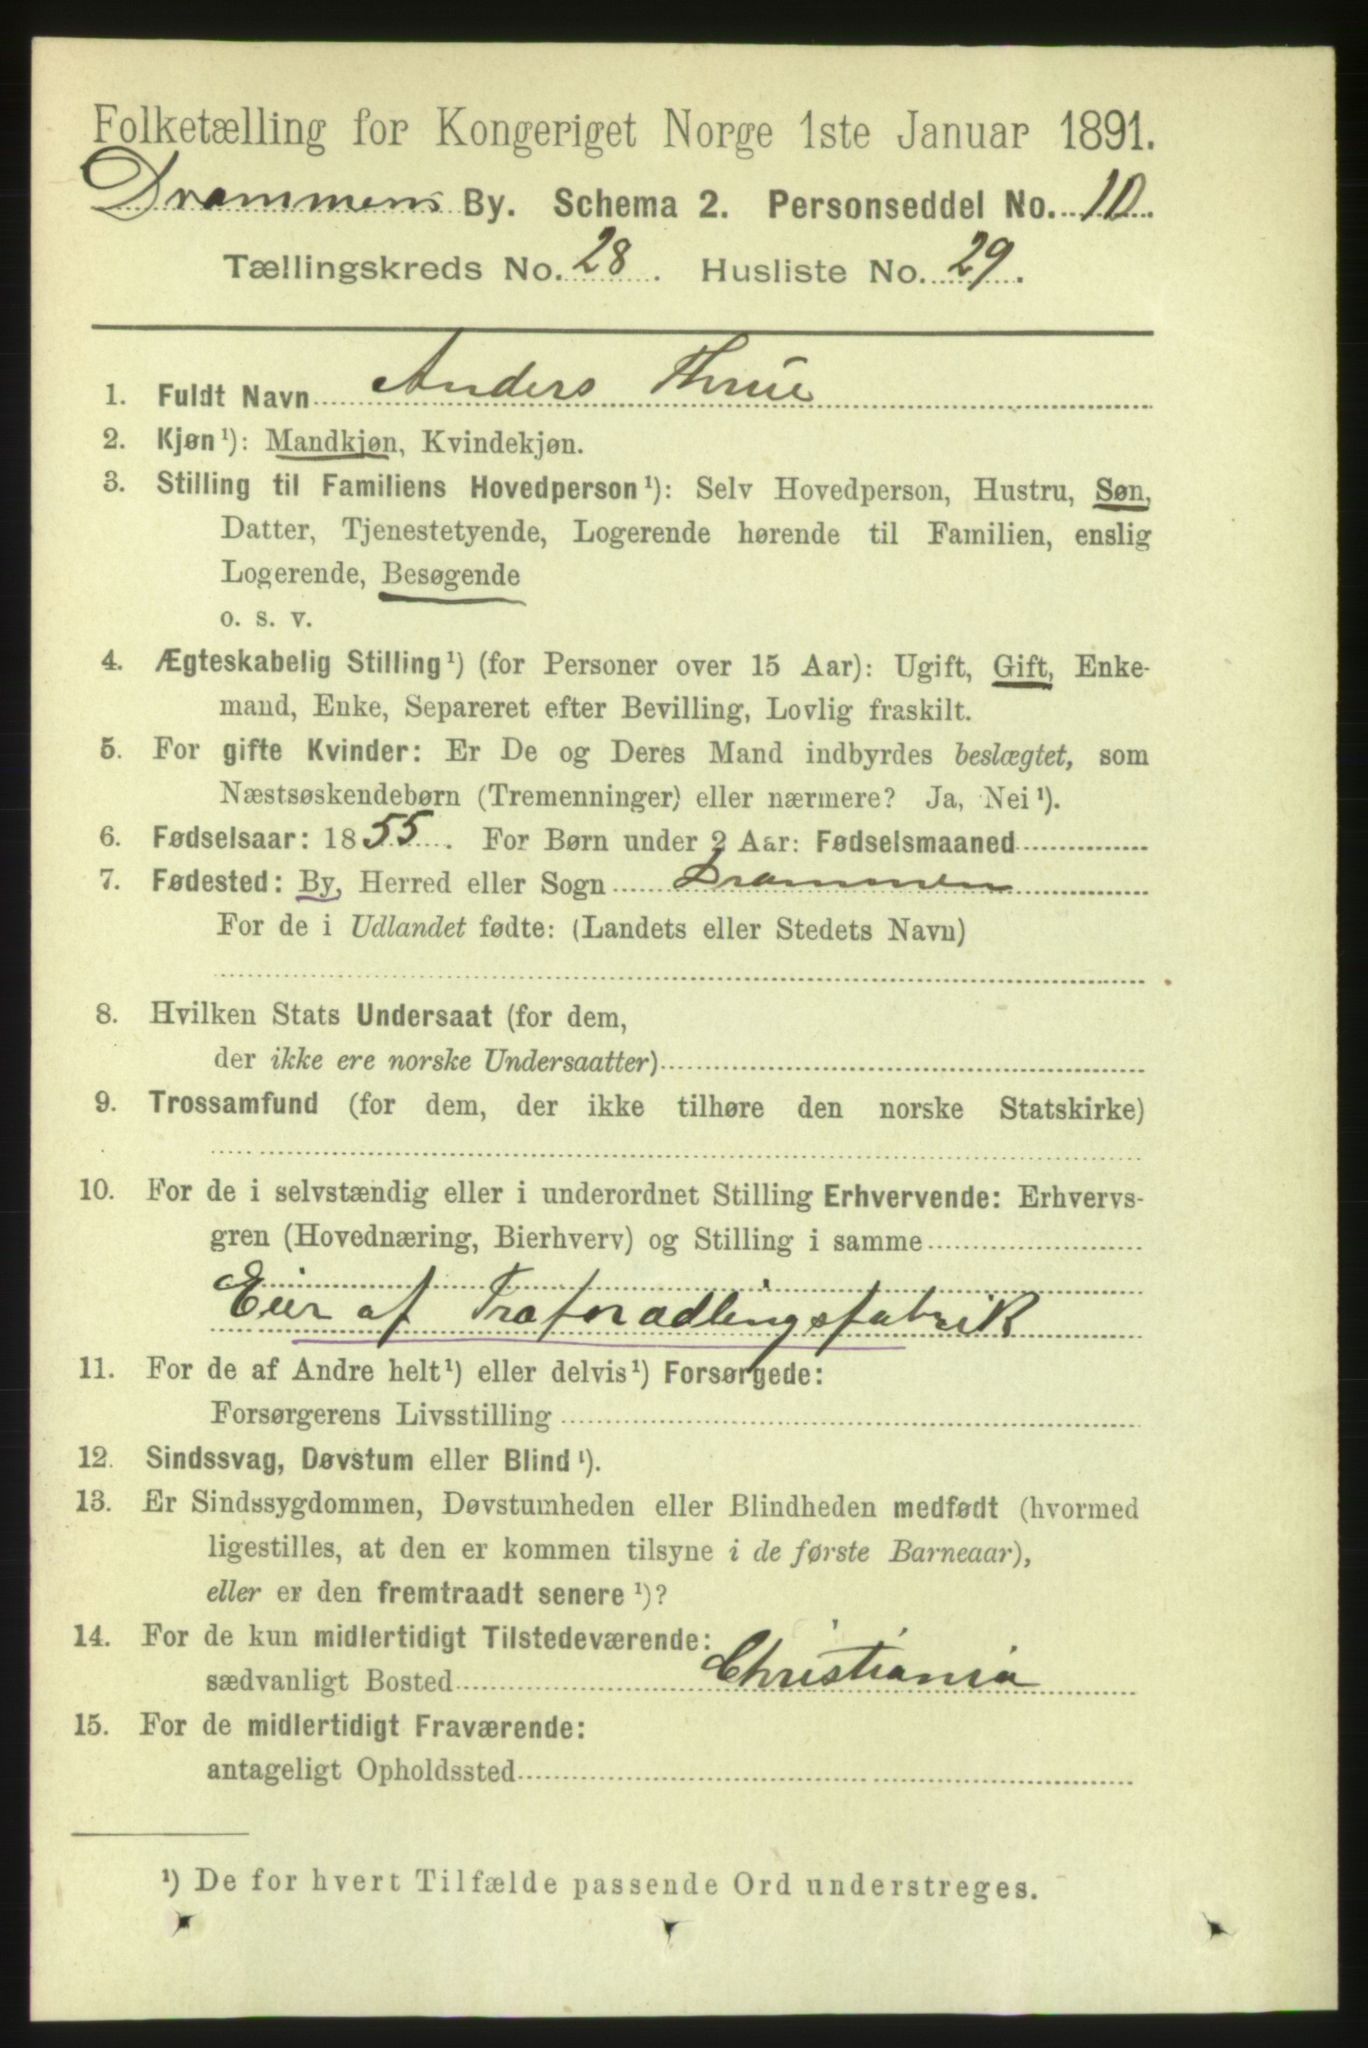 Folketælling for Kongeriget Norge 1ste Januar 1891.
Drammens By. Schema 2. Personseddel No. 10.
Tællingskreds No. 28. Husliste No. 29.
1. Fuldt Navn Anders Thrue
2. Kjøn¹): Mandkjøn, Kvindekjøn.
3. Stilling til Familiens Hovedperson¹): Selv Hovedperson, Hustru, Søn,
Datter, Tjenestetyende, Logerende hørende til Familien, enslig
Logerende, Besøgende
o. s. v.
4. Ægteskabelig Stilling¹) (for Personer over 15 Aar): Ugift, Gift, Enke-
mand, Enke, Separeret efter Bevilling, Lovlig fraskilt.
5. For gifte Kvinder: Er De og Deres Mand indbyrdes beslægtet, som
Næstsøskendebørn (Tremenninger) eller nærmere? Ja, Nei¹).
6. Fødselsaar: 1855. For Børn under 2 Aar: Fødselsmaaned
7. Fødested: By, Herred eller Sogn Drammen
For de i Udlandet fødte: (Landets eller Stedets Navn)
8. Hvilken Stats Undersaat (for dem,
der ikke ere norske Undersaatter)
9. Trossamfund (for dem, der ikke tilhøre den norske Statskirke)
10. For de i selvstændig eller i underordnet Stilling Erhvervende: Erhvervs-
gren (Hovednæring, Bierhverv) og Stilling i samme
Eier af Træforædlingsfabrik
11. For de af Andre helt¹) eller delvis¹) Forsørgede:
Forsørgerens Livsstilling
12. Sindssvag, Døvstum eller Blind¹).
13. Er Sindssygdommen, Døvstumheden eller Blindheden medfødt (hvormed
ligestilles, at den er kommen tilsyne i de første Barneaar),
eller er den fremtraadt senere¹)?
14. For de kun midlertidigt Tilstedeværende:
sædvanligt Bosted Christiania
15. For de midlertidigt Fraværende:
antageligt Opholdssted
¹) De for hvert Tilfælde passende Ord understreges.